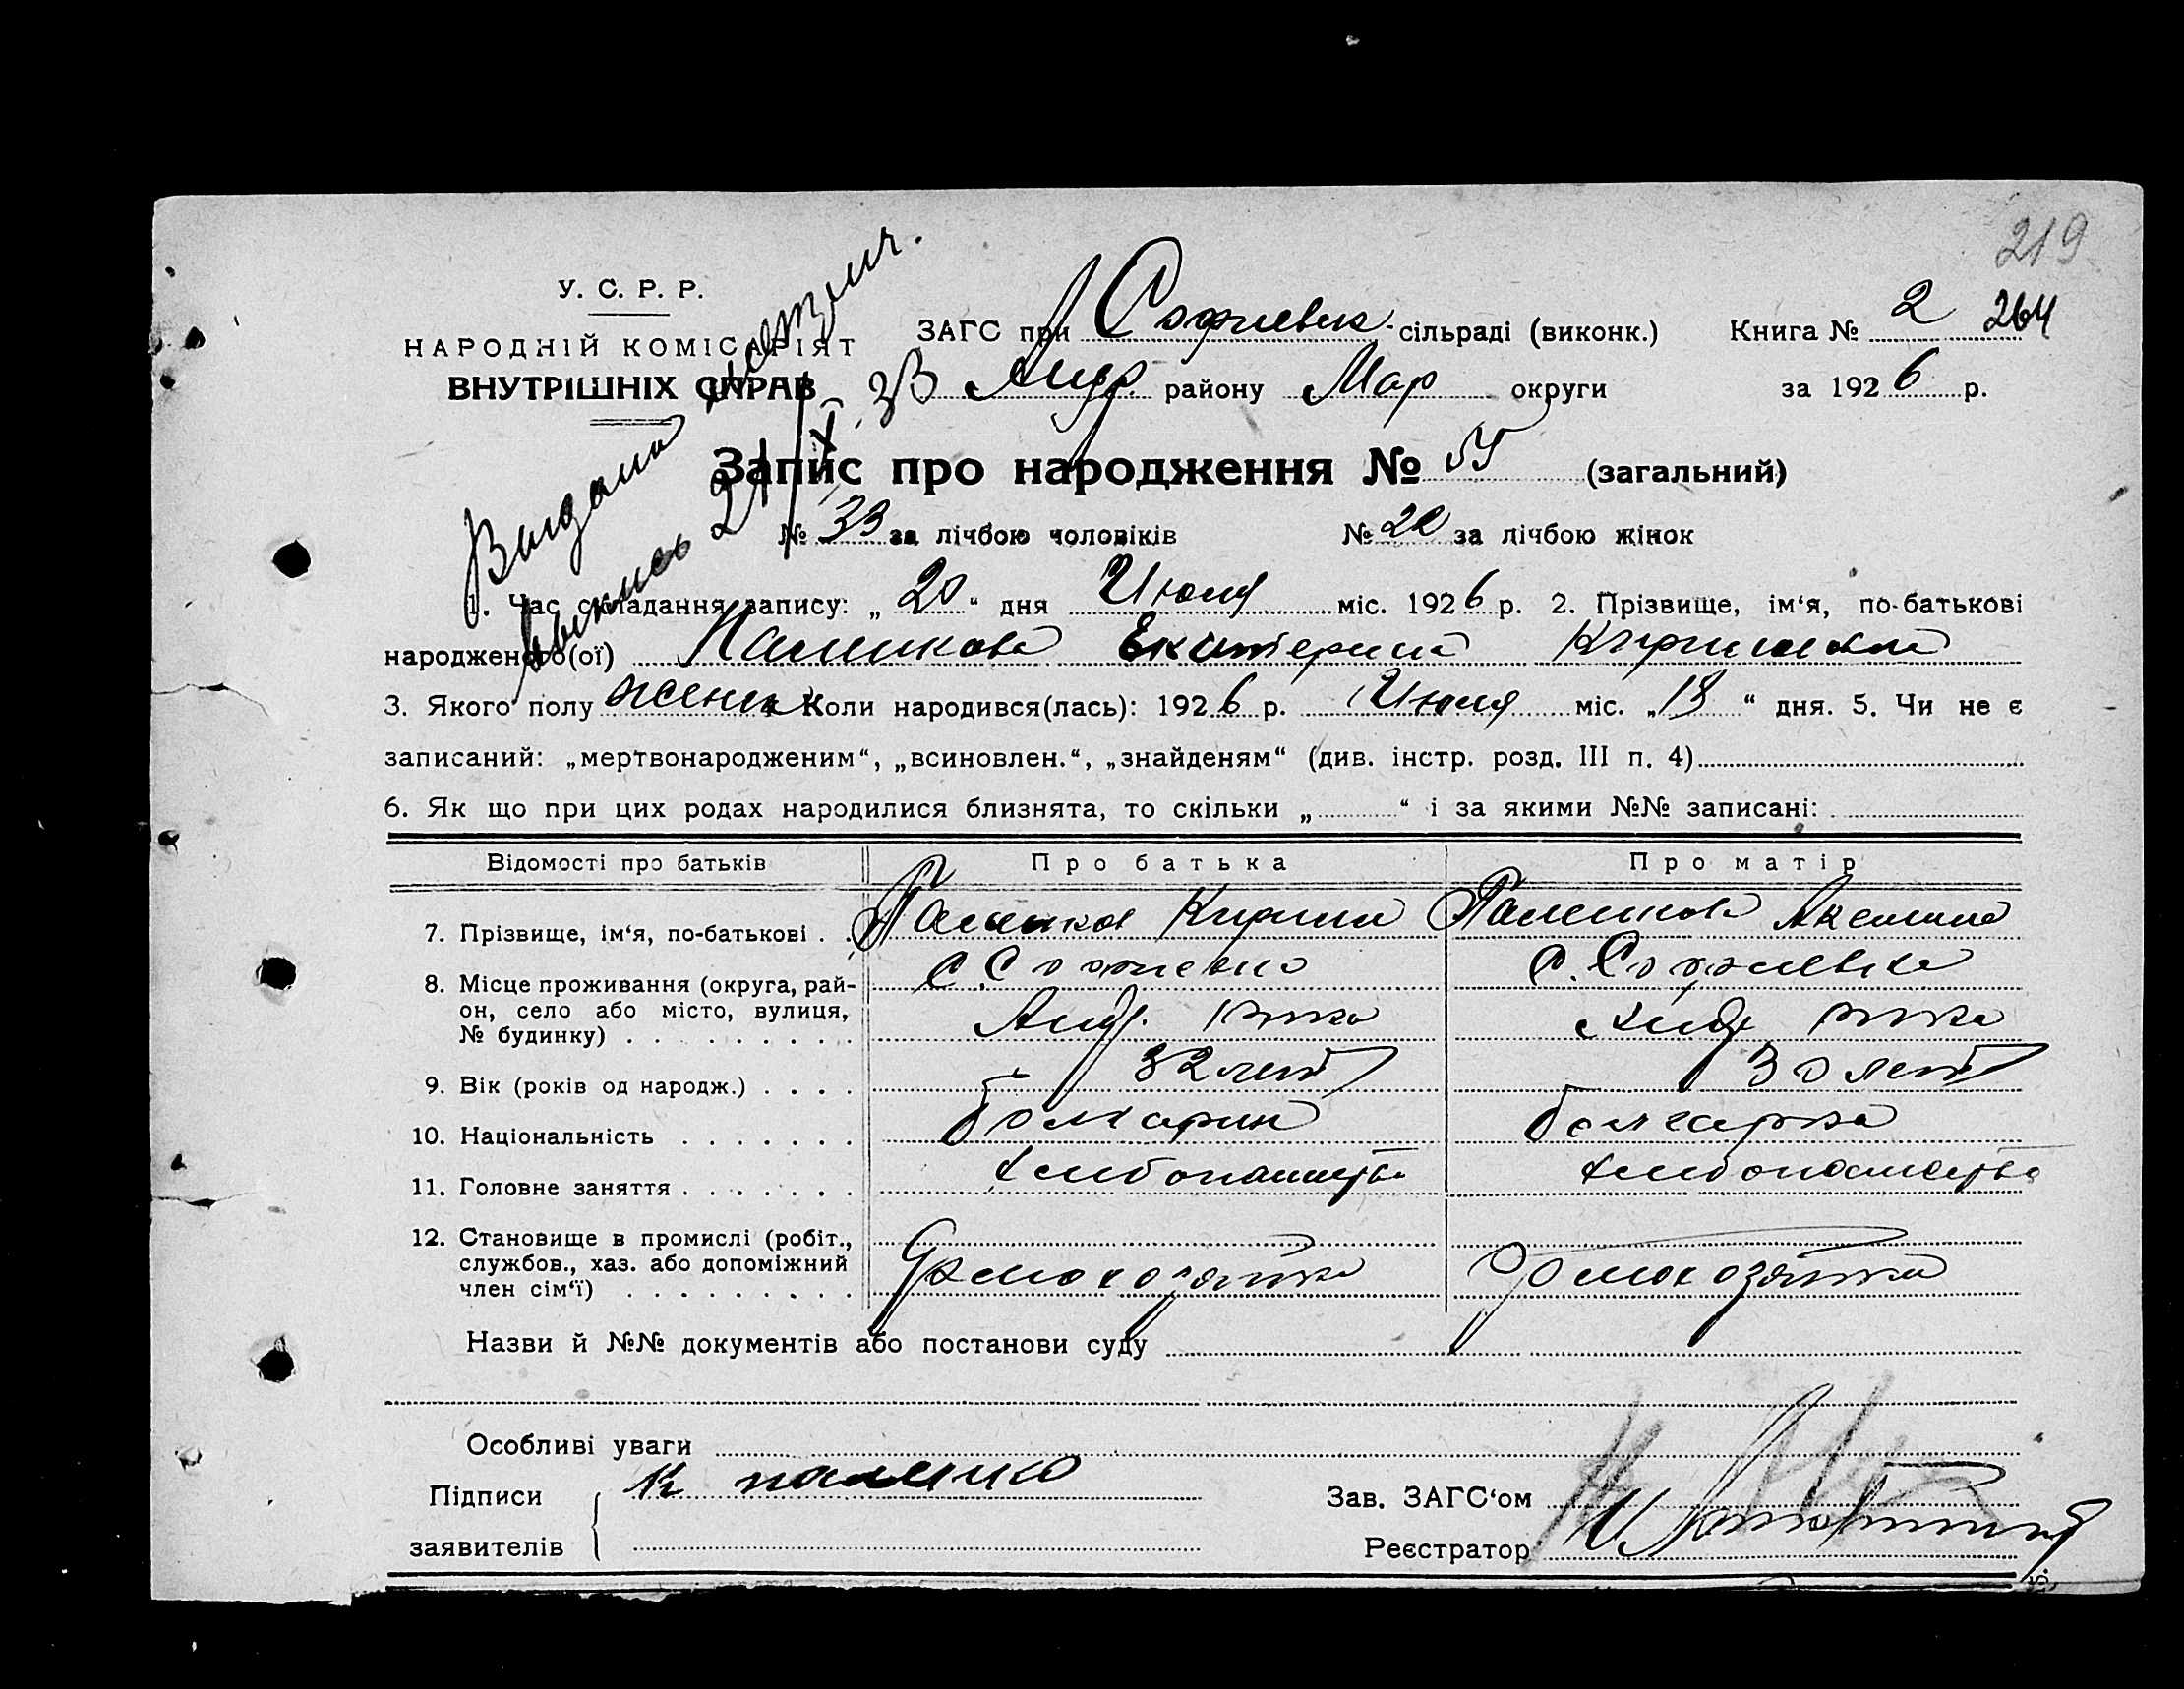 219
У. С. Р. Р.
НАРОДНІЙ КОМІСАРІЯТ
ВНУТРІШНІХ СПРАВ
Выдана
21/X 33
ЗАГС при Софиевск. сільраді (виконк.) Книга № 2 264
Андр. району Мар округи за 1926 р.
Запис про народження № (загальний)
№ 33 за лічбою чоловіків № 22 за лічбою жінок
1. Час складання запису: „20“ дня Июля міс. 1926 р. 2. Прізвище, ім‘я, по-батькові
народженого(ої) Паленкова Екатерина Кирилловна
3. Якого полу женск Коли народився(лась): 1926 р. Июля міс. „18“ дня. 5. Чи не є
записаний: „мертвонародженим“, „всиновлен.“, „знайденям“ (див. інстр. розд. III п. 4)
6. Як що при цих родах народилися близнята, то скільки „ “ і за якими №№ записані:
Відомості про батьків Про батька Про матір
7. Прізвище, ім‘я, по-батькові . . Паленков Кирилл Паленкова Аксинья
8. Місце проживання (округа, рай- С. Софиевка С. Софиевка
он, село або місто, вулиця, Андр. Андр
№ будинку) . . . . . . . . .
9. Вік (років од народж.) . . . . 32 лет 30 лет
10. Національність . . . . . . . болгарин болгарка
11. Головне заняття . . . . . . . хлебопашество хлебопашество
12. Становище в промислі (робіт.,
службов., хаз. або допоміжний домохозяйка домохозяйка
член сім‘ї) . . . . . . . . .
Назви й №№ документів або постанови суду
Особливі уваги
Підписи К паленко Зав. ЗАГС‘ом
заявителів Реєстратор